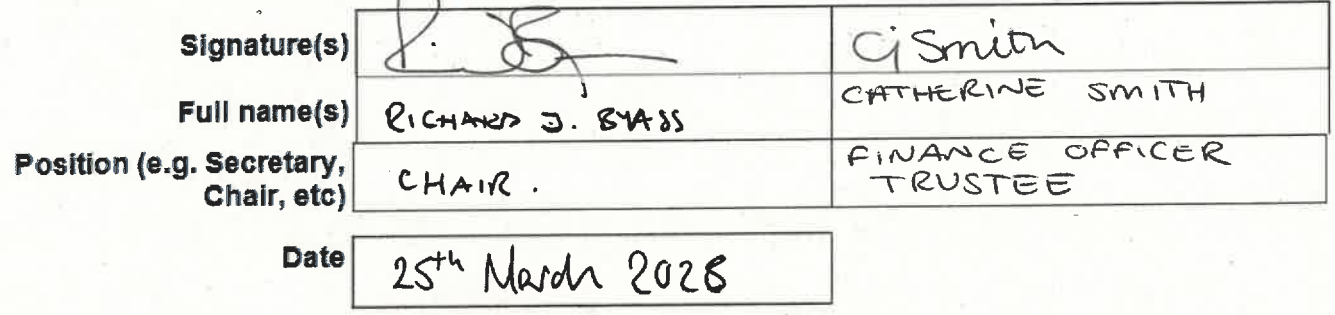 Signature(s) CJ Smith
Full name(s) RICHARD J. BYASS CATHERINE SMITH
Position (e.g. Secretary, CHAIR. FINANCE OFFICER
Chair, etc) TRUSTEE
Date 25th March